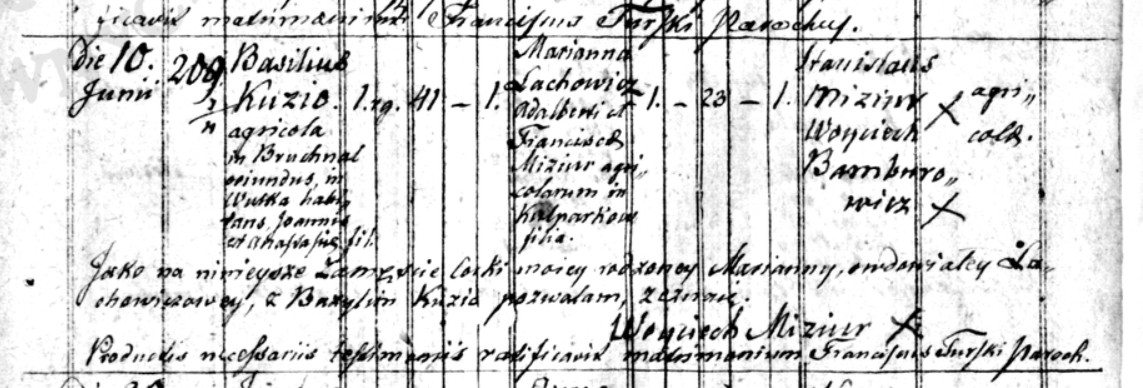 ficavit matrimonium Franciscus Turski Parochus.
Die 10. Junii
209
Basilius
Kuzio.
agricola
in Bruchnal
oriundus, in
Wulka habi„
tans Joannis
et Anastasiae fil.
1. rg. 41 – 1.
Marianna
Lachowicz
Adalberti et
Francisca
Miziur agri„
colarum in
Kulparkow
filia.
1. – 23 – 1.
Stanislaus
Miziur × agri„
Woyciech colae.
Bamburo„
wicz ×
Jako na ninieysze Zamęście Corki moiey rodzoney Marianny, owdowiałey La„
chowiczowey, z Bazylim Kuzio pozwalam, zeznaię.
Woyciech Miziur ×
Productis necessariis testimoniis ratificavit matrimonium Franciscus Turski Paroch.